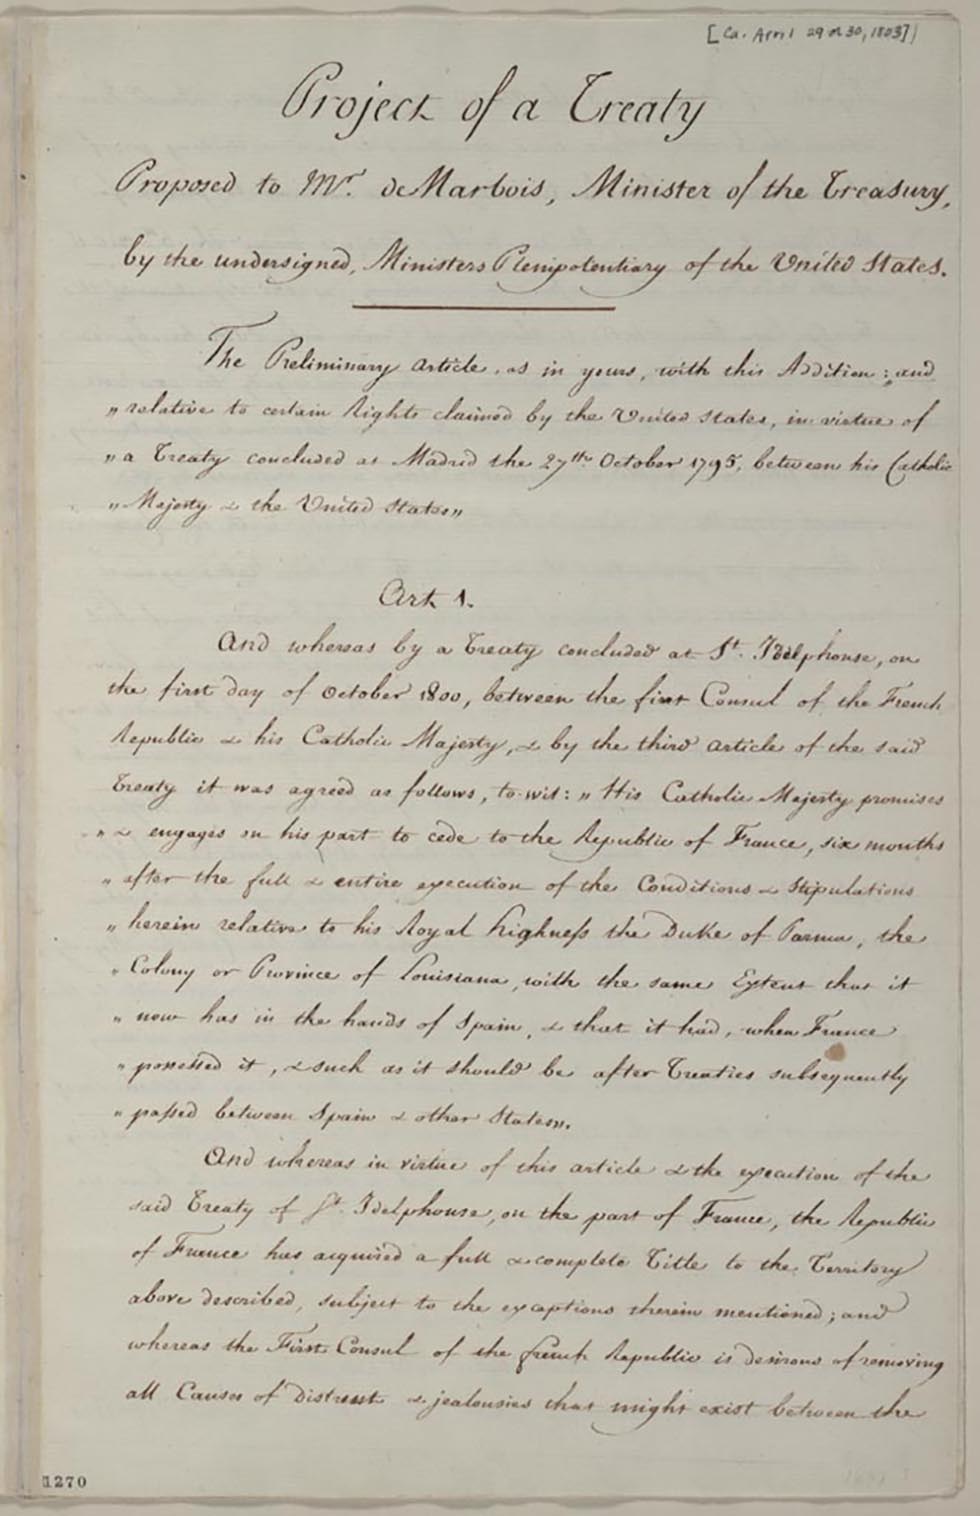 [Ca. April 29 or 30, 1803]
Project of a Treaty
Proposed to Mr. de Marbois, Minister of the Treasury,
by the undersigned, Ministers Plenipotentiary of the United States.
The Preliminary article, as in yours, with this Addition: „and
„relative to certain Rights claimed by the United States, in virtue of
„a Treaty concluded at Madrid the 27th October 1795, between his Catholic
„Majesty & the United States„
Art 1.
And whereas by a Treaty concluded at St. Idelphonse, on
the first day of October 1800, between the first Consul of the French
Republic & his Catholic Majesty, & by the third article of the said
Treaty it was agreed as follows, to wit: „His Catholic Majesty promises
„& engages on his part to cede to the Republic of France, six months
„after the full & entire execution of the Conditions & Stipulations
„herein relative to his Royal highness the Duke of Parma, the
„Colony or Province of Louisiana, with the same Extent that it
„now has in the hands of Spain, & that it had, when France
„possessed it, & such as it should be after Treaties subsequently
„passed between Spain & other States„.
And whereas in virtue of this article & the execution of the
said Treaty of St. Idelphonse, on the part of France, the Republic
of France has acquired a full & complete Title to the Territory
above described, subject to the exceptions therein mentioned; and
whereas the First Consul of the french Republic is desirous of removing
all Causes of Distrust & jealousies that might exist between the
1270